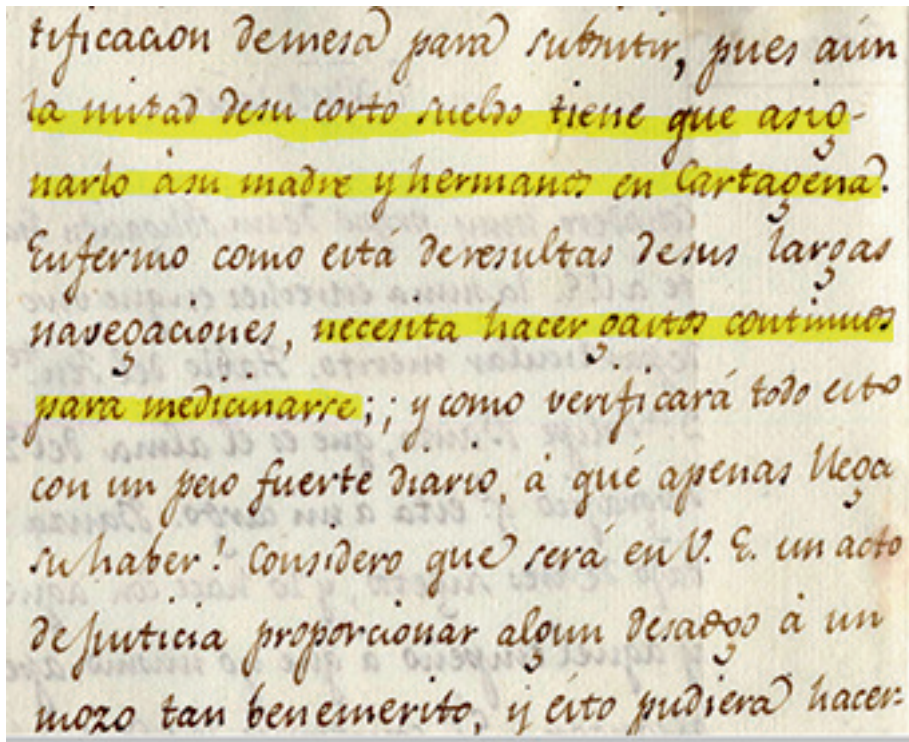 tificacion demesa para subsistir, pues aún
la mitad desu corto sueldo tiene que asig-
narlo àsu madre y hermanos en Cartagena.
Enfermo como está deresultas desus largas
navegaciones, necesita hacer gastos continuos
para medicinarse; ; y como verificará todo esto
con un peso fuerte diario, à qué apenas llega
su haber! Considero que será en V. E. un acto
dejusticia proporcionar algun desaogo à un
mozo tan benemerito, y ésto pudiera hacer-